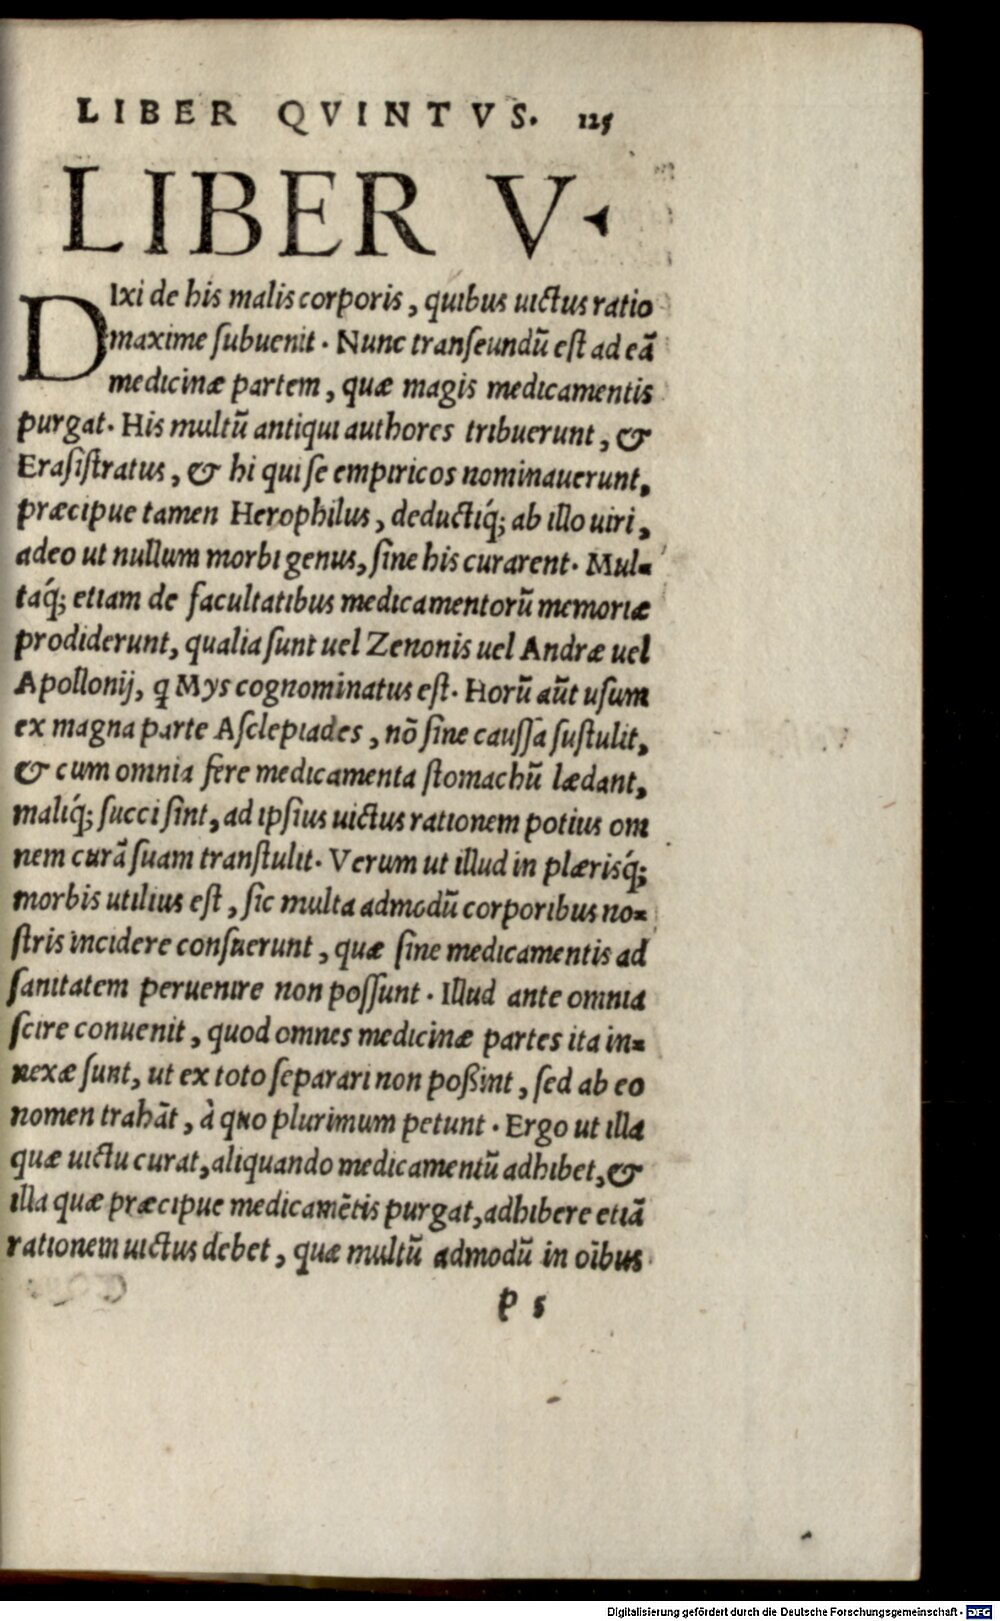 LIBER QVINTVS. 125
LIBER V.
DIxi de his malis corporis, quibus uictus ratio
maxime ſubuenit. Nunc tranſeundū eſt ad eā
medicinæ partem, quæ magis medicamentis
purgat. His multū antiqui authores tribuerunt, &
Eraſiſtratus, & hi qui ſe empiricos nominauerunt,
præcipue tamen Herophilus, deductiq́; ab illo uiri,
adeo ut nullum morbi genus, ſine his curarent. Mul-
taq́; etiam de facultatibus medicamentorū memoriæ
prodiderunt, qualia ſunt uel Zenonis uel Andræ uel
Apollonij, q Mys cognominatus eſt. Horū aūt uſum
ex magna parte Aſclepiades, nō ſine cauſſa ſuſtulit,
& cum omnia fere medicamenta ſtomachū lædant,
maliq́; ſucci ſint, ad ipſius uictus rationem potius om
nem curā ſuam tranſtulit. Verum ut illud in plæriſq́;
morbis utilius eſt, ſic multa admodū corporibus no-
ſtris incidere conſuerunt, quæ ſine medicamentis ad
ſanitatem peruenire non poſſunt. Illud ante omnia
ſcire conuenit, quod omnes medicinæ partes ita in-
nexæ ſunt, ut ex toto ſeparari non poßint, ſed ab eo
nomen trahāt, à quo plurimum petunt. Ergo ut illa
quæ uictu curat, aliquando medicamentū adhibet, &
illa quæ præcipue medicamētis purgat, adhibere etiā
rationem uictus debet, quæ multū admodū in oībus
P 5
Digitalisierung gefördert durch die Deutsche Forschungsgemeinschaft - DFG